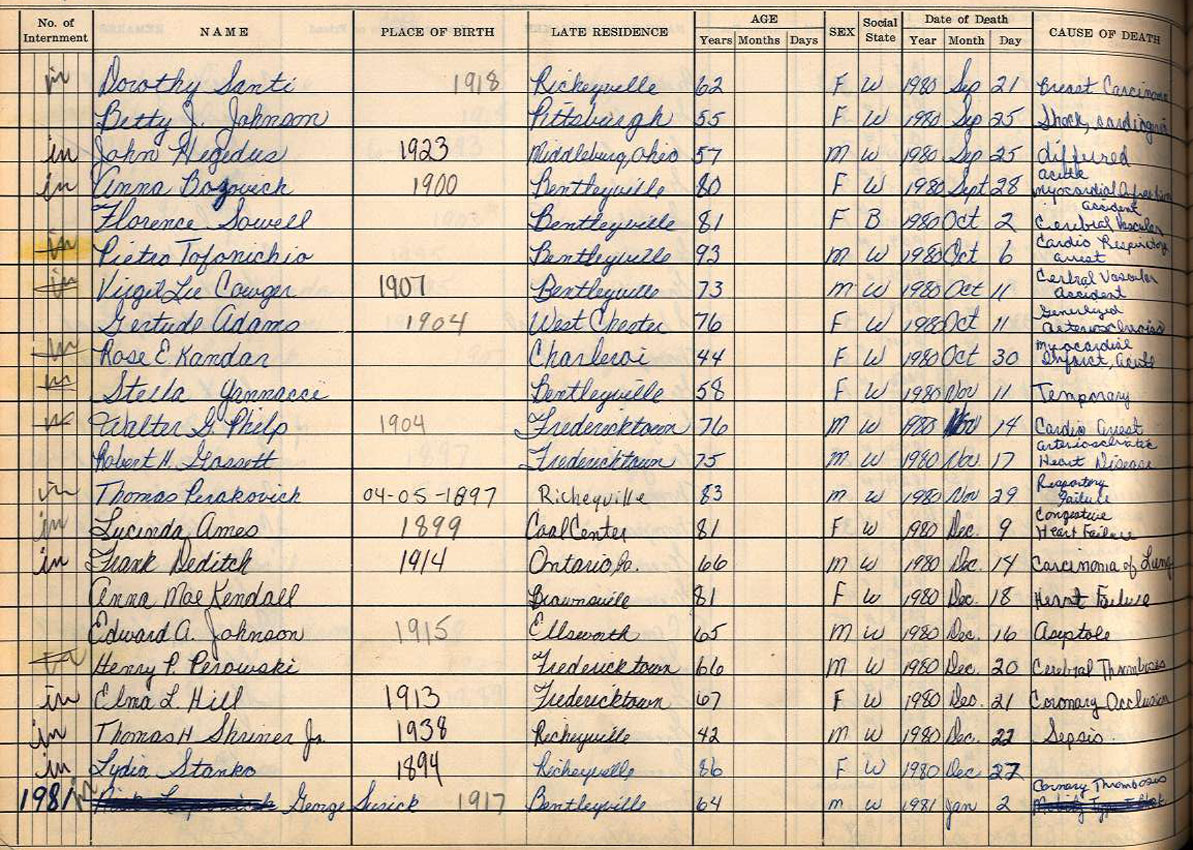 No. of Internment NAME PLACE OF BIRTH LATE RESIDENCE AGE Years Months Days SEX Social State Date of Death Year Month Day CAUSE OF DEATH
in Dorothy Santi 1918 Richeyville 62 F W 1980 Sep 21 Breast Carcinoma
Betty J. Johnson Pittsburgh 55 F W 1980 Sep 25 Shock, cardiogenic
in John Hegedus 1923 Middleburg, Ohio 57 M W 1980 Sep 25 diffused
in Anna Bozovich 1900 Bentleyville 80 F W 1980 Sept 28 acute myocardial Infarction
Florence Sowell Bentleyville 81 F B 1980 Oct 2 Cerebral Vascular accident
in Pietro Tofonichio Bentleyville 93 M W 1980 Oct 6 Cardio Respiratory arrest
in Virgil Lee Cowger 1907 Bentleyville 73 M W 1980 Oct 11 Cerbral Vascular accident
Gertude Adams 1904 West Chester 76 F W 1980 Oct 11 arteriosclerosis
in Rose E. Kandar Charleroi 44 F W 1980 Oct 30 myocardial Infarct, acute
in Stella Yannacci Bentleyville 58 F W 1980 Nov 11 Temporary
Walter G. Philp 1904 Fredericktown 76 M W 1980 Nov 14 Cardio arrest
Robert H. Gassett Fredericktown 75 M W 1980 Nov 17 Heart Disease
in Thomas Perakovich 04-05-1897 Richeyville 83 M W 1980 Nov 29 Failure
in Lucinda Ames 1899 Coal Center 81 F W 1980 Dec. 9 Congestive Heart Failure
in Frank Deditch 1914 Ontario 66 M W 1980 Dec. 14 Carcinoma of Lung
Anna Mae Kendall Brownsville 81 F W 1980 Dec. 18 Heart Failure
Edward A. Johnson 1915 Ellsworth 65 M W 1980 Dec. 16 Asystole
Henry P. Perowski Fredericktown 66 M W 1980 Dec. 20 Cerebral Thrombosis
in Elma L. Hill 1913 Fredericktown 67 F W 1980 Dec. 21 Coronary Occlusion
in Thomas H Shriner Jr. 1938 Richeyville 42 M W 1980 Dec. 22 Sepsis
in Lydia Stanko 1894 Richeyville 86 F W 1980 Dec 27
1981 in George Susick 1917 Bentleyville 64 M W 1981 Jan 2 Cornary Thrombosis